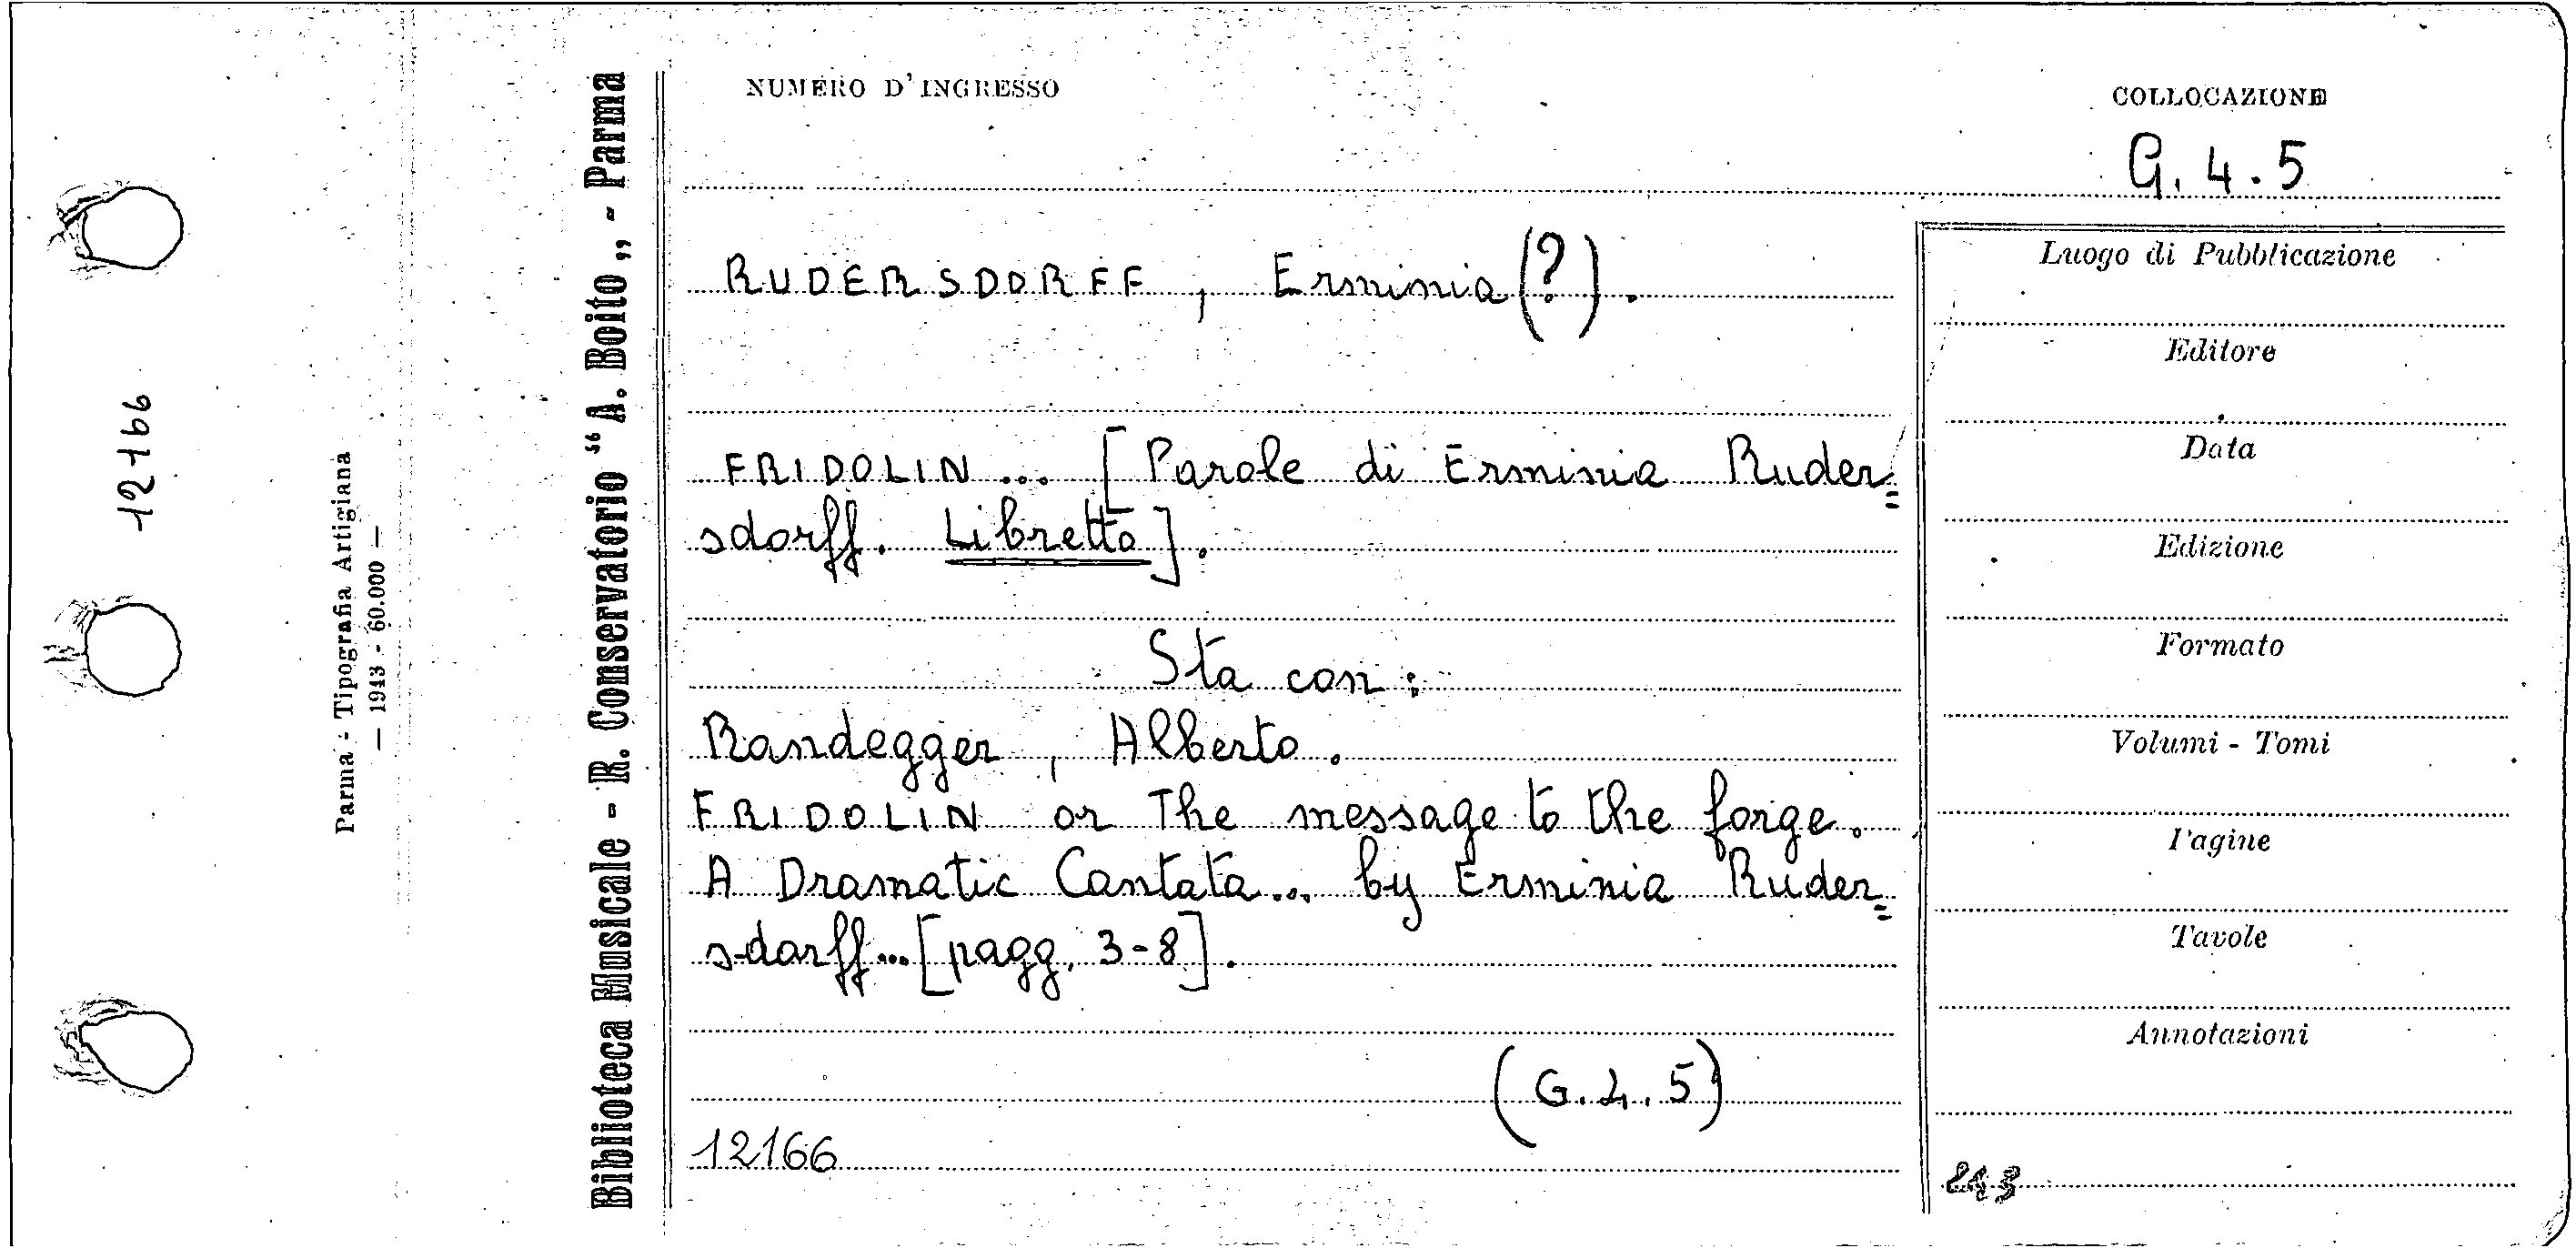 12166
Parma - Tipografia Artigiana
— 1943 - 60.000 —
Biblioteca Musicale - R. Conservatorio “A. Boito„ - Parma
NUMERO D'INGRESSO
COLLOCAZIONE
G. 4. 5
RUDERSDORFF, Erminia (?).
FRIDOLIN ... [Parole di Erminia Ruder=
sdorff. Libretto].
Sta con:
Randegger, Alberto.
FRIDOLIN or The message to the forge.
A Dramatic Cantata... by Erminia Ruder=
sdorff... [pagg. 3-8].
(G. 4. 5)
12166
Luogo di Pubblicazione
Editore
Data
Edizione
Formato
Volumi - Tomi
Pagine
Tavole
Annotazioni
243